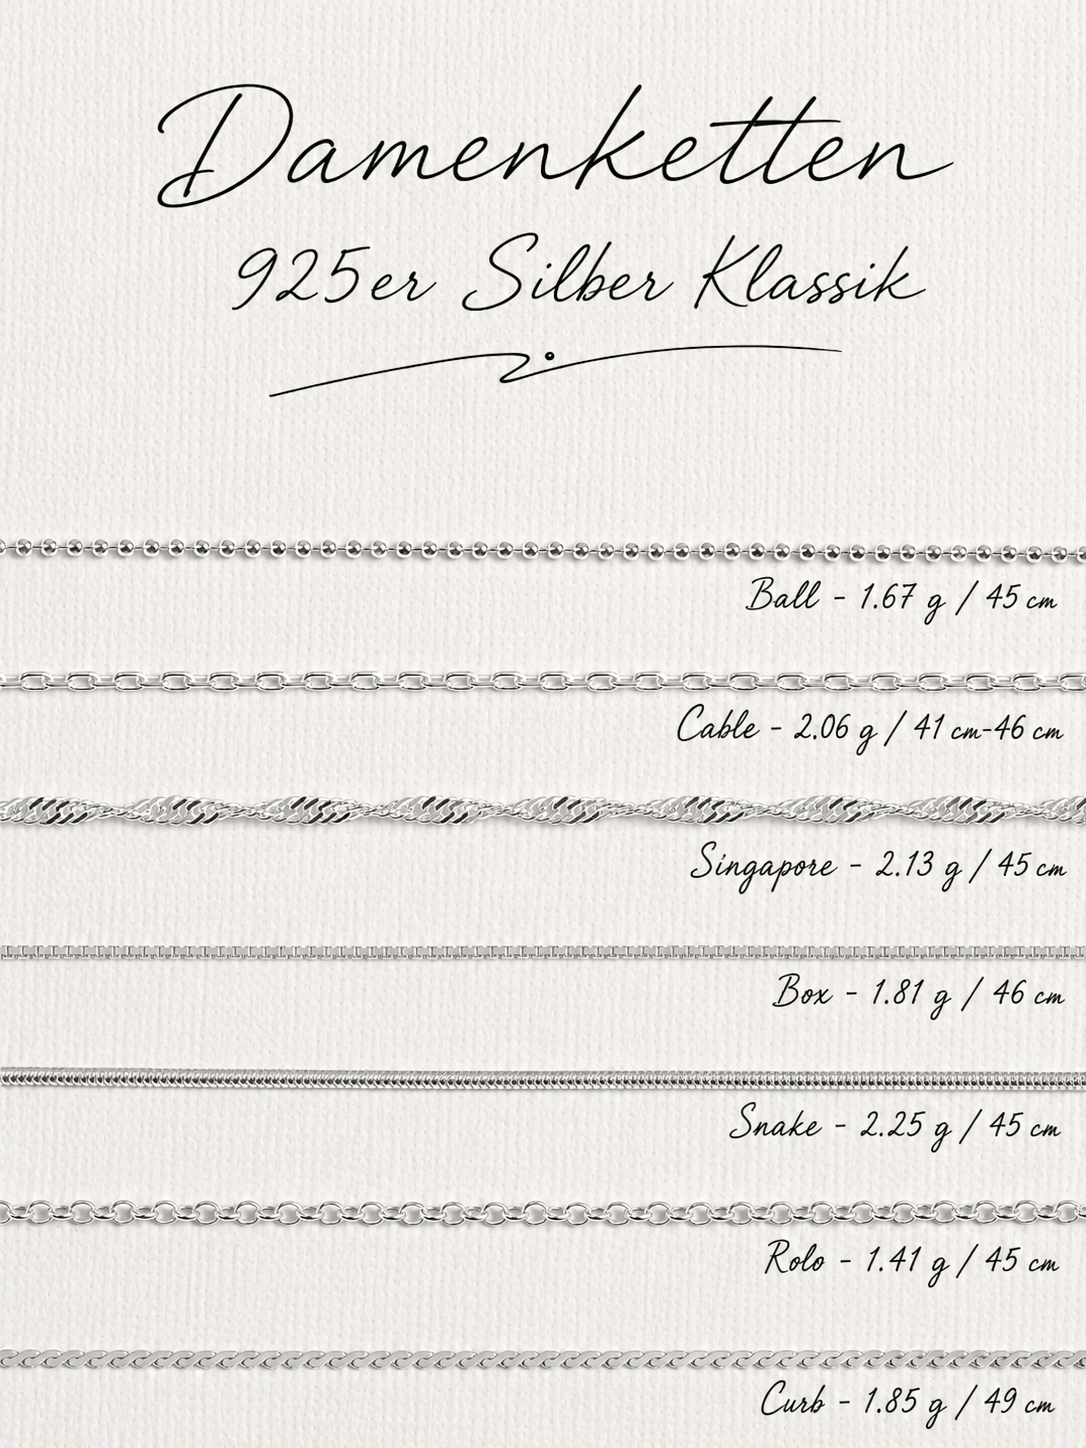 Damenketten
925er Silber Klassik
Ball - 1.67 g / 45 cm
Cable - 2.06 g / 41 cm-46 cm
Singapore - 2.13 g / 45 cm
Box - 1.81 g / 46 cm
Snake - 2.25 g / 45 cm
Rolo - 1.41 g / 45 cm
Curb - 1.85 g / 49 cm